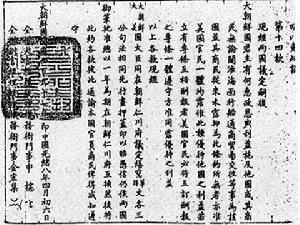 第十四款
現經兩國議定嗣後
大朝鮮國君主有何惠政恩典利益施及他國或其商
民無論關涉海面行船通商貿易交往等事為該
國並其商民從來未霑抑為此條約所無者亦准
美國官民一體均霑惟此種優待他國之利益若
立有專條互相酬報者美國官民必將互訂酬報
之專條一體遵守方准同霑優待之利益
以上各款現經
大朝鮮
大美國大臣同在朝鮮仁川府議定繕寫華洋文各三
分句法相同先行畫押蓋印以昭憑信仍俟兩國
御筆批准總以一年為期在朝鮮仁川府互換然後將
此約各款彼此通諭本國官員商民俾得咸知遵
守
大朝鮮國 即中國光緒八年四月初六日